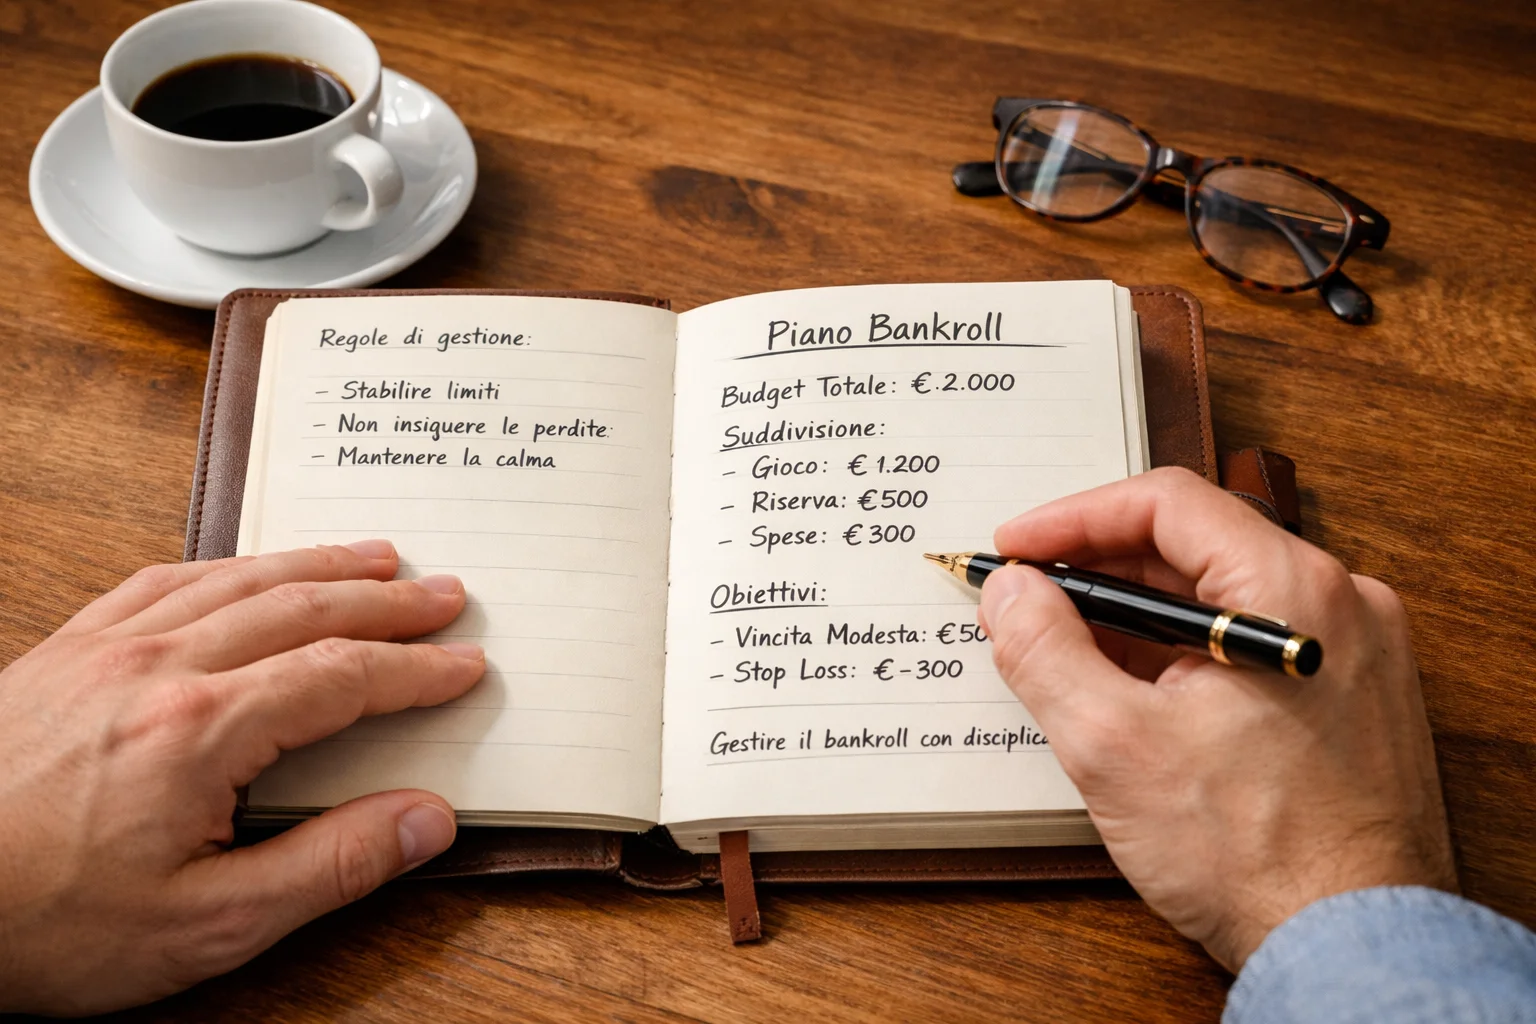 Regole di gestione:
- Stabilire limiti
- Non insiguere le perdite:
- Mantenere la calma
Piano Bankroll
Budget Totale: €.2.000
Suddivisione:
- Gioco: € 1.200
- Riserva: €500
- Spese: € 300
Obiettivi:
- Vincita Modesta:
- Stop Loss: €-300
Gestire il bankroll con